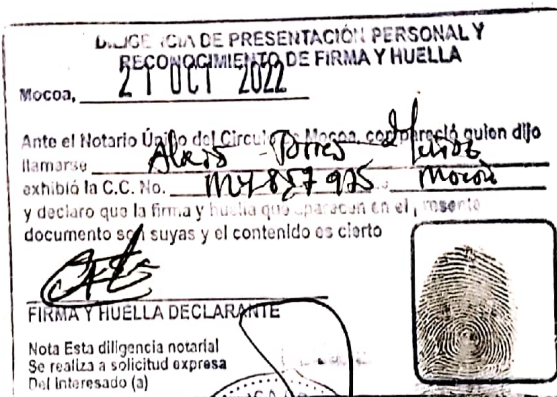 DILIGENCIA DE PRESENTACIÓN PERSONAL Y
RECONOCIMIENTO DE FIRMA Y HUELLA
Mocoa, 21 OCT 2022
Ante el Notario Único del Circulo de Mocoa, compareció quien dijo
llamarse Torres
exhibió la C.C. No. Mocoa
y declaro que la firma y huella que aparecen en el presente
documento son suyas y el contenido es cierto
FIRMA Y HUELLA DECLARANTE
Nota Esta diligencia notarial
Se realiza a solicitud expresa
Del interesado (a)